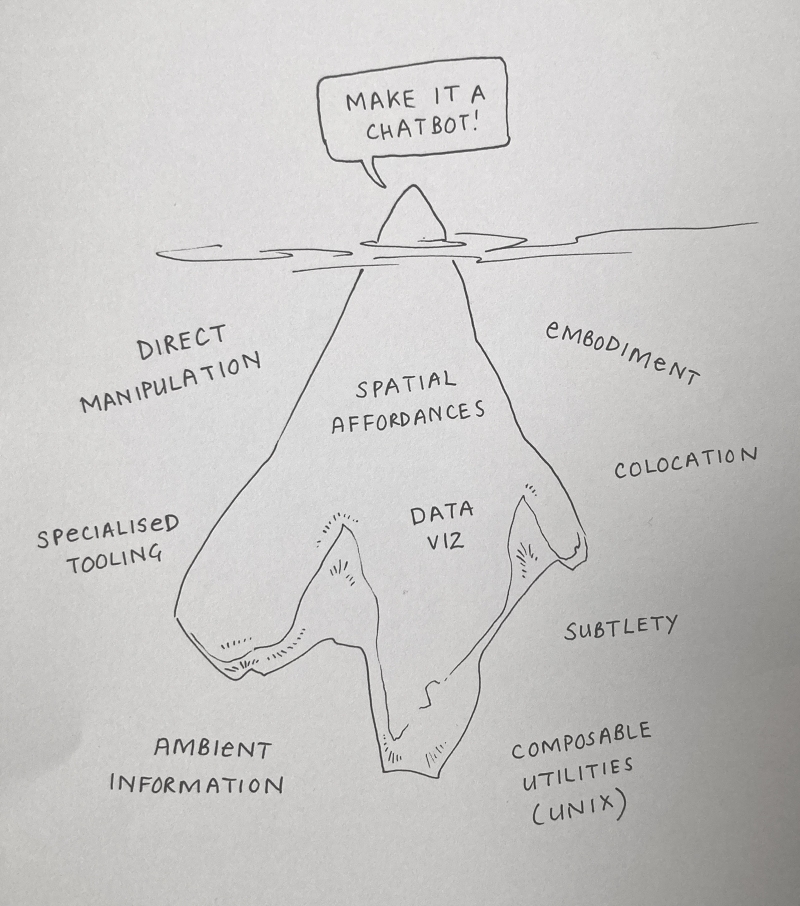 MAKE IT A
CHATBOT!
DIRECT
MANIPULATION
EMBODIMENT
SPATIAL
AFFORDANCES
COLOCATION
SPECIALISED
TOOLING
DATA
VIZ
SUBTLETY
AMBIENT
INFORMATION
COMPOSABLE
UTILITIES
(UNIX)